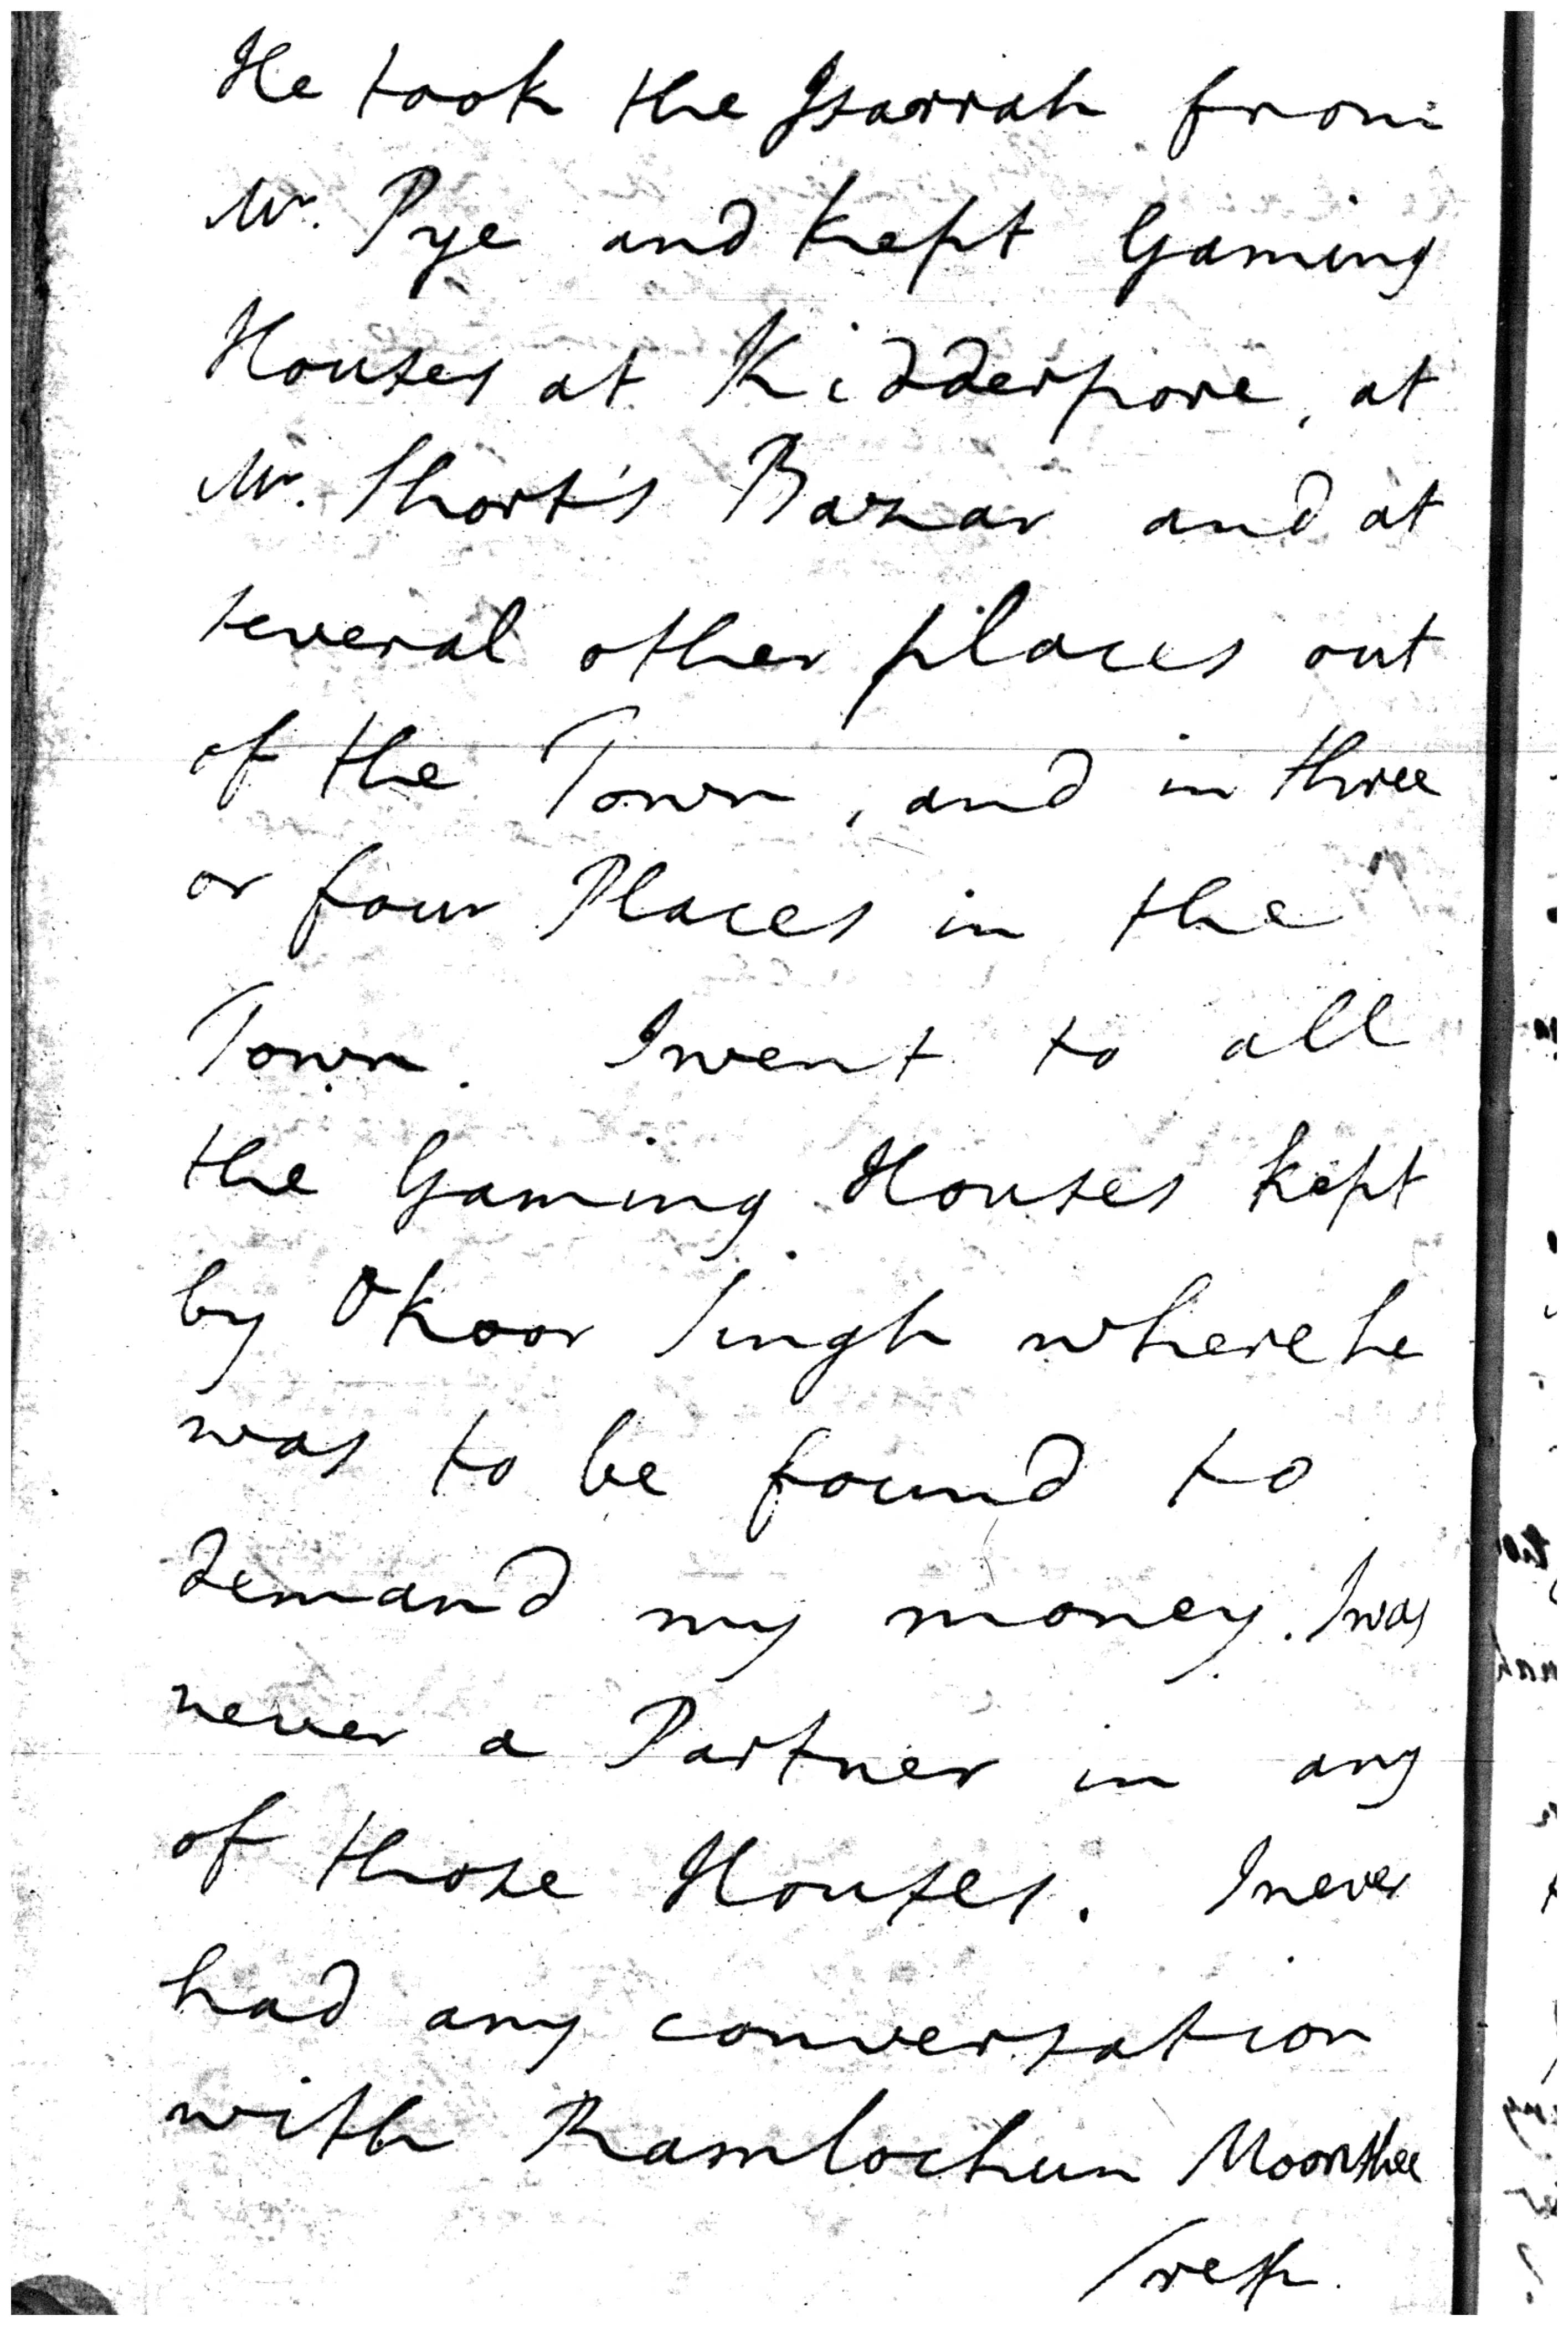 He took the Isarrah from
Mr. Pye and kept Gaming
Houses at Kidderpore, at
Mr. Short's Bazar and at
several other places out
of the Town, and in three
or four Places in the
Town. I went to all
the Gaming Houses kept
by Okoor Singh where he
was to be found to
demand my money. I was
never a Partner in any
of those Houses. I never
had any conversation
with Ramlochun Moonshee